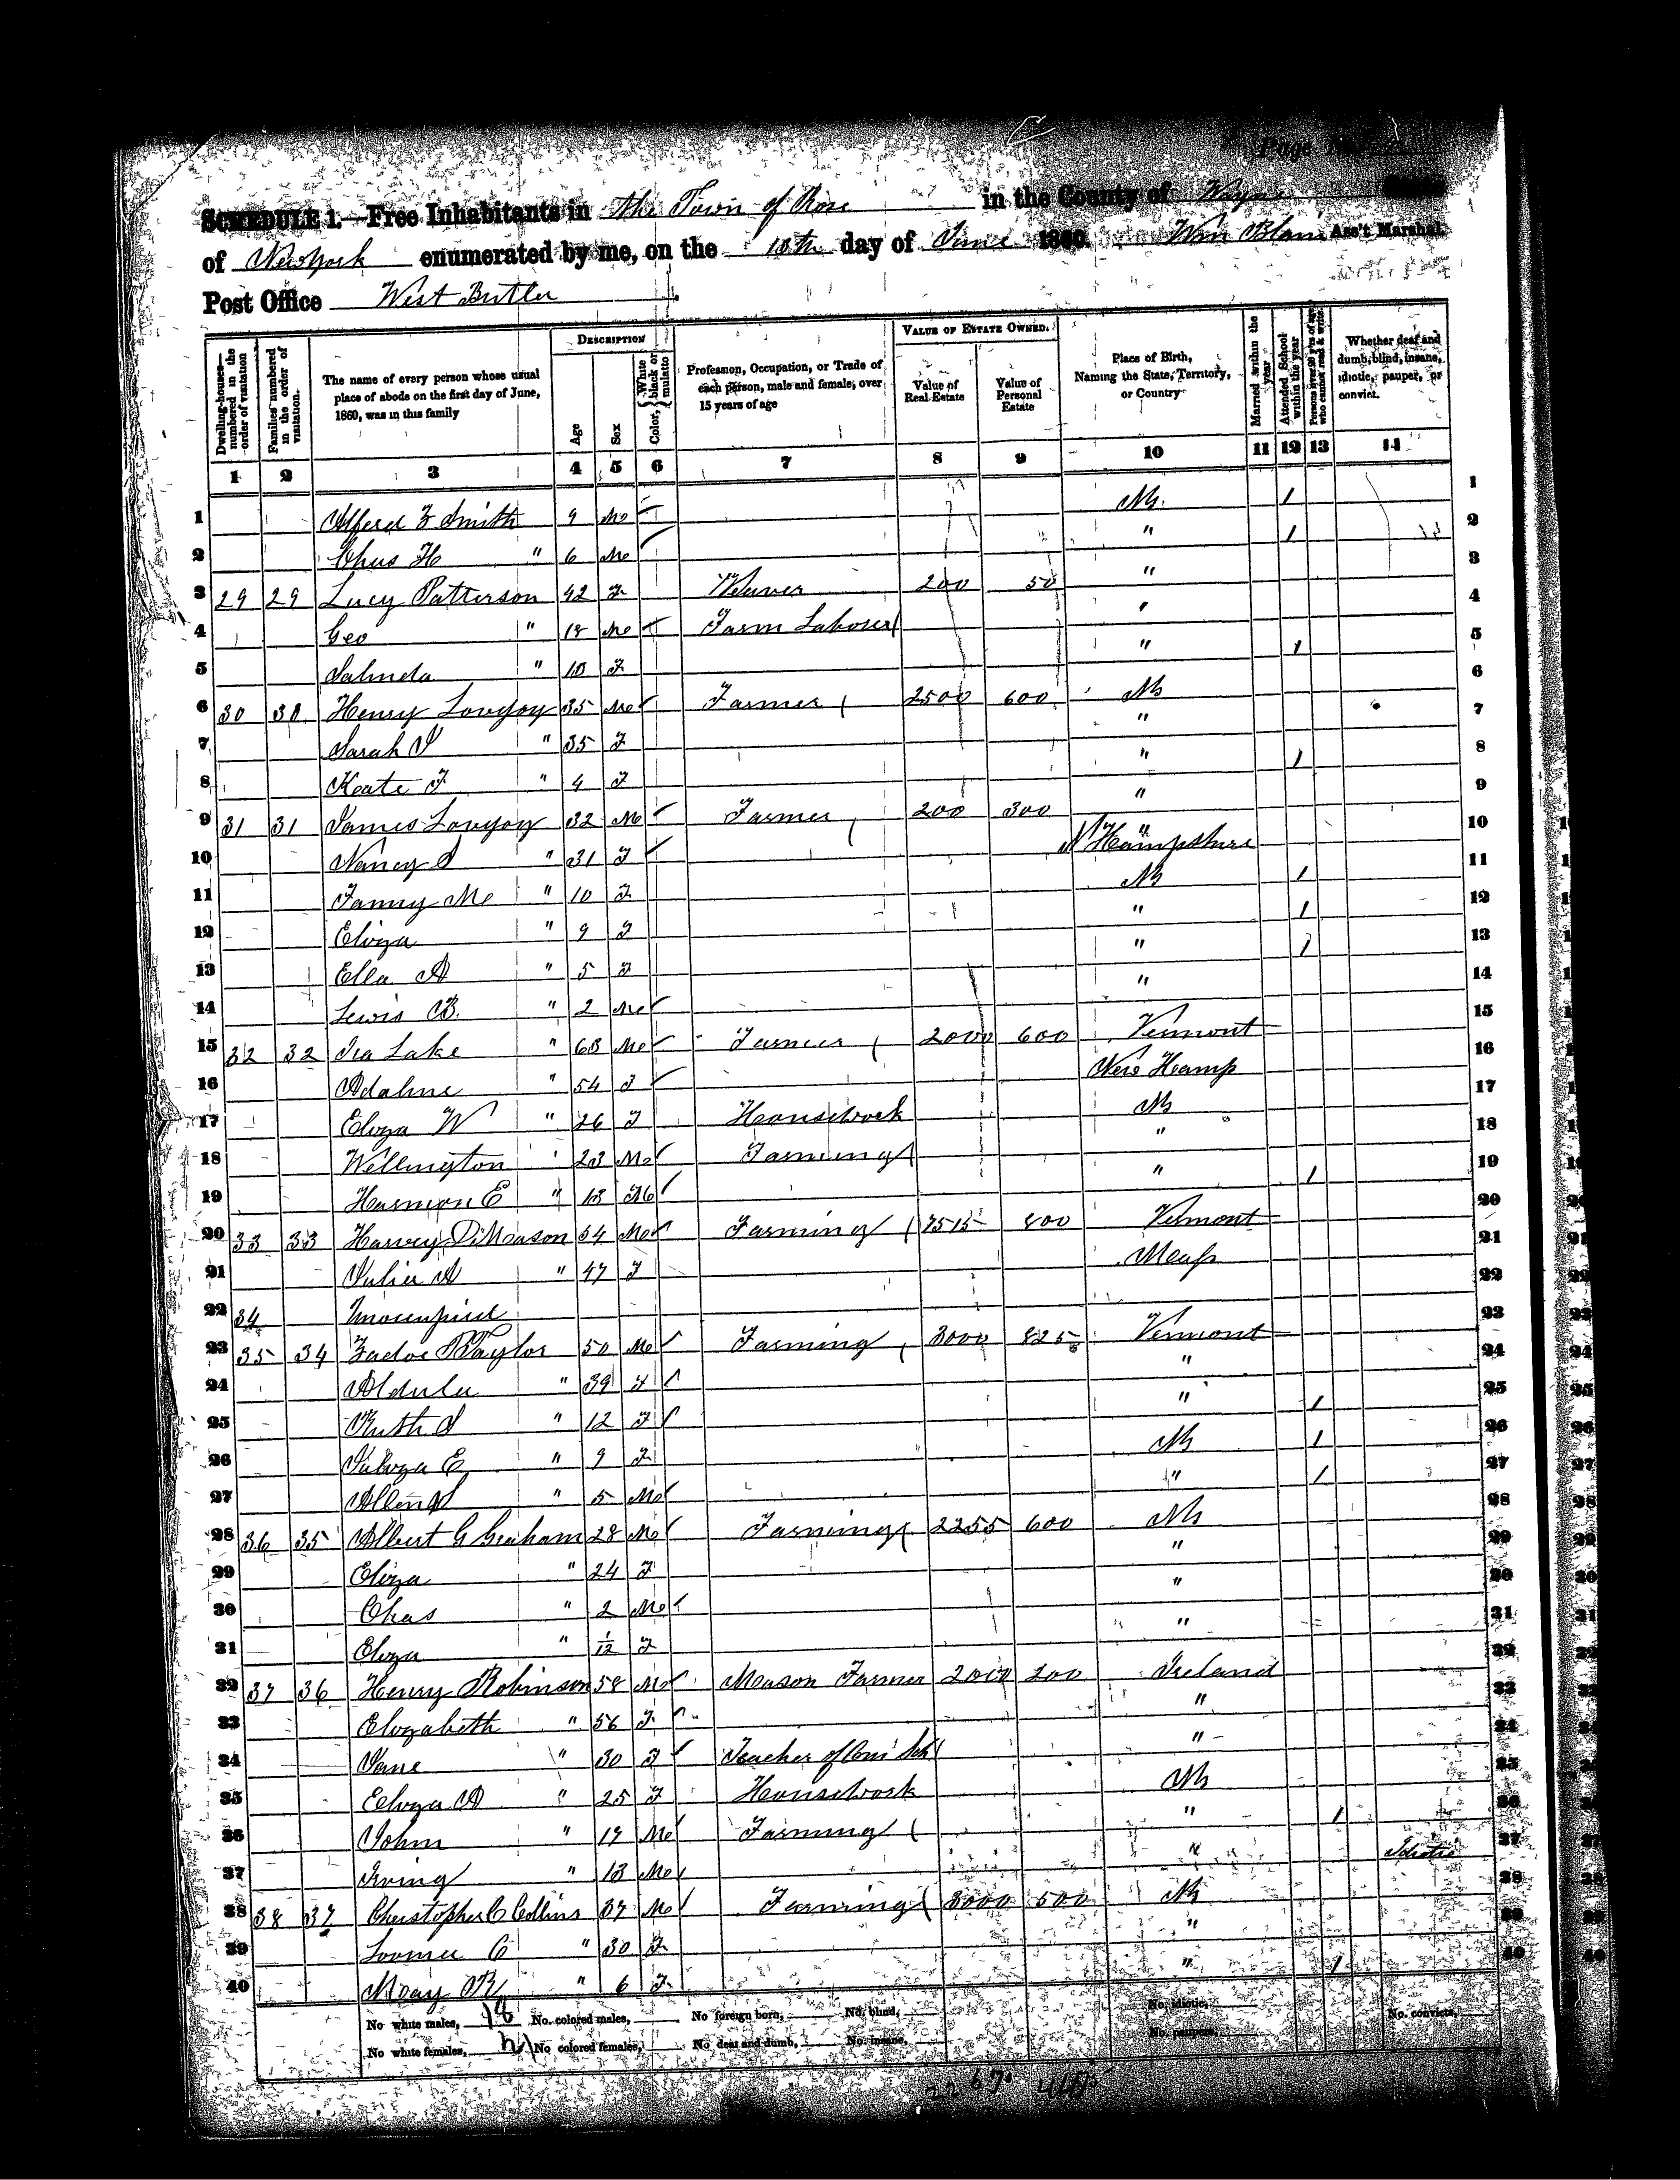 Page
SCHEDULE 1.—Free Inhabitants in the Town of Rose in the County of Wayne State
of New York enumerated by me, on the 18th day of June 1860. Wm Blain Ass't Marshal.
Post Office West Butler
Dwelling-houses—numbered in the order of visitation
Families numbered in the order of visitation.
The name of every person whose usual place of abode on the first day of June, 1860, was in this family
DESCRIPTION
Age
Sex
Color, White, black or mulatto
Profession, Occupation, or Trade of each person, male and female, over 15 years of age
VALUE OF ESTATE OWNED.
Value of Real Estate
Value of Personal Estate
Place of Birth, Naming the State, Territory, or Country
Married within the year
Attended School within the year
Persons over 20 y'rs of age who cannot read & write
Whether deaf and dumb, blind, insane, idiotic, pauper, or convict.
1 2 3 4 5 6 7 8 9 10 11 12 13 14
1 Alferd Z Smith 9 M NY 1 1
2 Chas H " 6 M " 1 2
3 29 29 Lucy Patterson 42 F Weaver 200 50 " 3
4 Geo " 18 M Farm Laborer " 4
5 Salinda " 10 F " 1 5
6 30 30 Henry Lovejoy 35 M Farmer 2500 600 NY 6
7 Sarah J " 35 F " 7
8 Kate F " 4 F " 1 8
9 31 31 James Lovejoy 32 M Farmer 200 300 " 9
10 Nancy J " 31 F N Hampshire 10
11 Fanny M " 10 F NY 1 11
12 Eliza " 9 F " 1 12
13 Ella A " 5 F " 1 13
14 Lewis B. " 2 M " 14
15 32 32 Ira Lake " 63 M Farmer 2000 600 Vermont 15
16 Adaline " 54 F New Hamp 16
17 Eliza W " 26 F Housework NY 17
18 Wellington " 23 M Farming " 18
19 Harmon E " 13 M " 1 19
20 33 33 Harvey D Mason 54 M Farming 7515 800 Vermont 20
21 Julia A " 47 F Mass 21
22 34 Unoccupied 22
23 35 34 Zadoc P Taylor 50 M Farming 3000 825 Vermont 23
24 " 39 F " 24
25 Ruth J " 12 F " 1 25
26 E " 9 F NY 1 26
27 Allen " 5 M " 1 27
28 36 35 Albert G Graham 28 M Farming 2255 600 NY 28
29 Eliza " 24 F " 29
30 Chas " 2 M " 30
31 Eliza " 1/12 F " 31
32 37 36 Henry Robinson 58 M Mason Farmer 2000 200 Ireland 32
33 Elizabeth " 56 F " 33
34 Jane " 30 F Teacher of Com Sch " 34
35 Eliza A " 25 F Housework NY 35
36 John " 19 M Farming " 1 36
37 Irving " 13 M " Idiotic 37
38 38 37 Christopher C Collins 37 M Farming 3000 500 NY 38
39 C " 30 F " 39
40 Mary R " 6 F " 1 40
No white males, 18 No. colored males, No foreign born, No. blind, No. idiotic, No. convicts,
No white females, 21 No colored females, No deaf and dumb, No. insane, No. paupers,